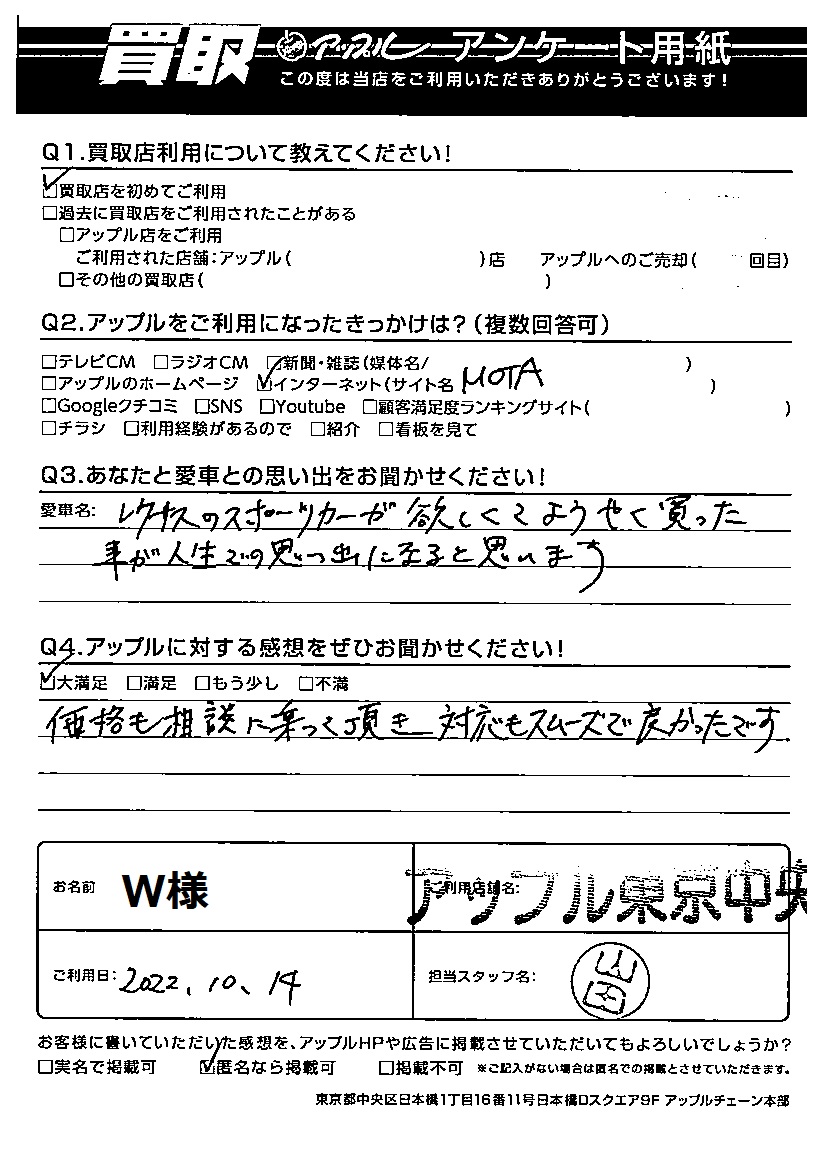 買取 アップル アンケート用紙
この度は当店をご利用いただきありがとうございます!
Q1.買取店利用について教えてください!
☑買取店を初めてご利用
□過去に買取店をご利用されたことがある
□アップル店をご利用
ご利用された店舗:アップル( )店 アップルへのご売却( 回目)
□その他の買取店( )
Q2.アップルをご利用になったきっかけは?(複数回答可)
□テレビCM □ラジオCM □新聞・雑誌(媒体名/ )
□アップルのホームページ ☑インターネット(サイト名 MOTA )
□Googleクチコミ □SNS □Youtube □顧客満足度ランキングサイト( )
□チラシ □利用経験があるので □紹介 □看板を見て
Q3.あなたと愛車との思い出をお聞かせください!
愛車名: レクサスのスポーツカーが欲しくてようやく買った
事が人生での思い出になると思います
Q4.アップルに対する感想をぜひお聞かせください!
☑大満足 □満足 □もう少し □不満
価格も相談に乗って頂き 対応もスムーズで良かったです
お名前 W様 ご利用店舗名: アップル東京中央
ご利用日: 2022.10.14 担当スタッフ名: 山田
お客様に書いていただいた感想を、アップルHPや広告に掲載させていただいてもよろしいでしょうか?
□実名で掲載可 ☑匿名なら掲載可 □掲載不可 ※ご記入がない場合は匿名での掲載とさせていただきます。
東京都中央区日本橋1丁目16番11号日本橋Dスクエア9F アップルチェーン本部